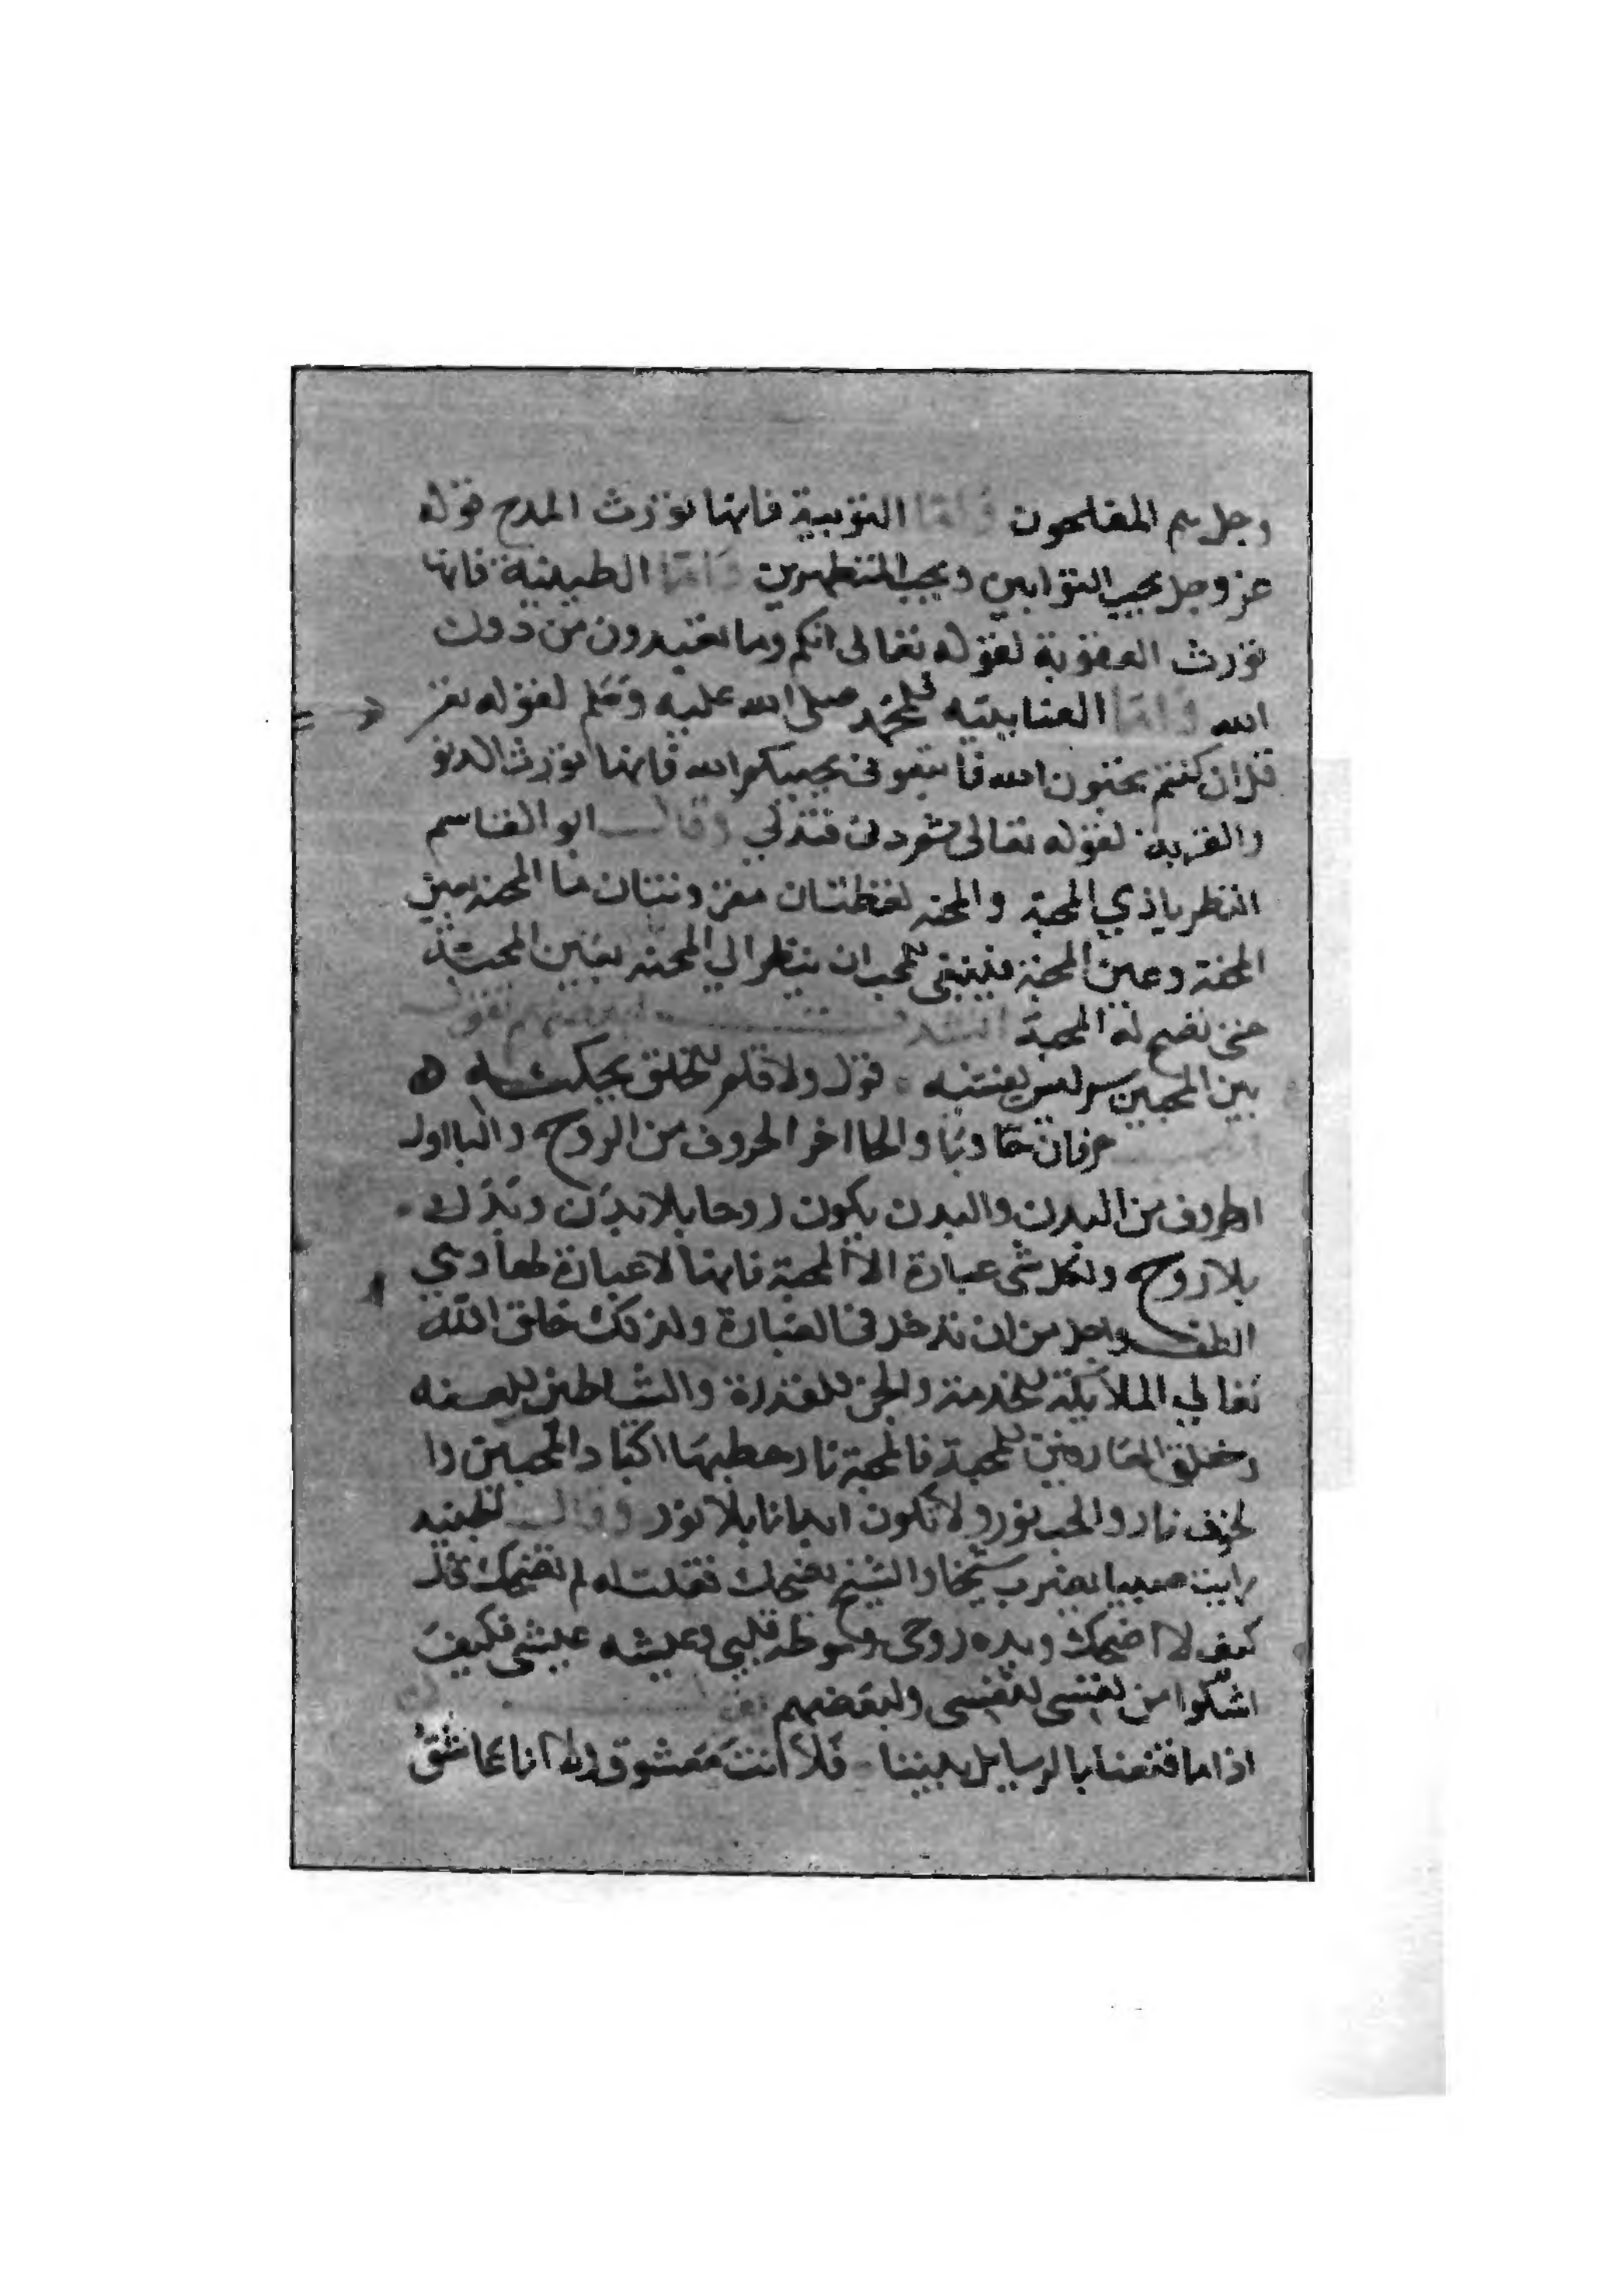 وجل هم المفلحون واما التوبية فانها تورث المدح قوله
عز وجل يحب التوابين ويحب المتطهرين واما الطبيعية فانها
تورث العقوبة لقوله تعالى انكم وما تعبدون من دون
الله واما العنابيته لمحمد صلى الله عليه وسلم لقوله تعز
قل ان كنتم تحبون الله فاتبعونى يحببكم الله فانها تورث الدنو
والقربة لقوله تعالى ثم دنى فتدلي وقال ابو القاسم
انظر ياذي المحبة والمحنه لفظتان مقرونتان ما المحنه بعين
المحنة وعين المحبة فينبغى للمحب ان ينظر الي المحنه بعين المحبة
حتى تصح له المحبة انشد لبعضهم يقول
بين المحبين سر ليس يفشيه قول ولا قلم للخلق يحكيه ه
حرفان حا وبا والحا اخر الحروف من الروح والبا اول
الحروف من البدن والبدن يكون روحا بلا بدن وبدن
بلا روح ولكل شى عبارة الا المحبة فانها لا عبارة لها وهي
الطف واجل من ان تدخل فى العبارة ولذلك خلق الله
تعالي الملايكة للخدمة والجن للقدرة والشياطين للعنه
وخلق العارفين للمحبة فالمحبة نار حطبها اكباد المحبين وا
لخوف نار والحب نور ولا تكون ابدا نارا بلا نور وقال الجنيد
رايت صبيا يضرب شيخا والشيخ يضحك فقلت له لم تضحك قال
كيف لا اضحك وبيده روحى وسوطه قلبى وعيشه عيشى فكيف
اشكوا من نفسى لنفسى ولبعضهم
اذا ما قنعنا بالرسايل بيننا فلا انت معشوق ولا انا عاشق